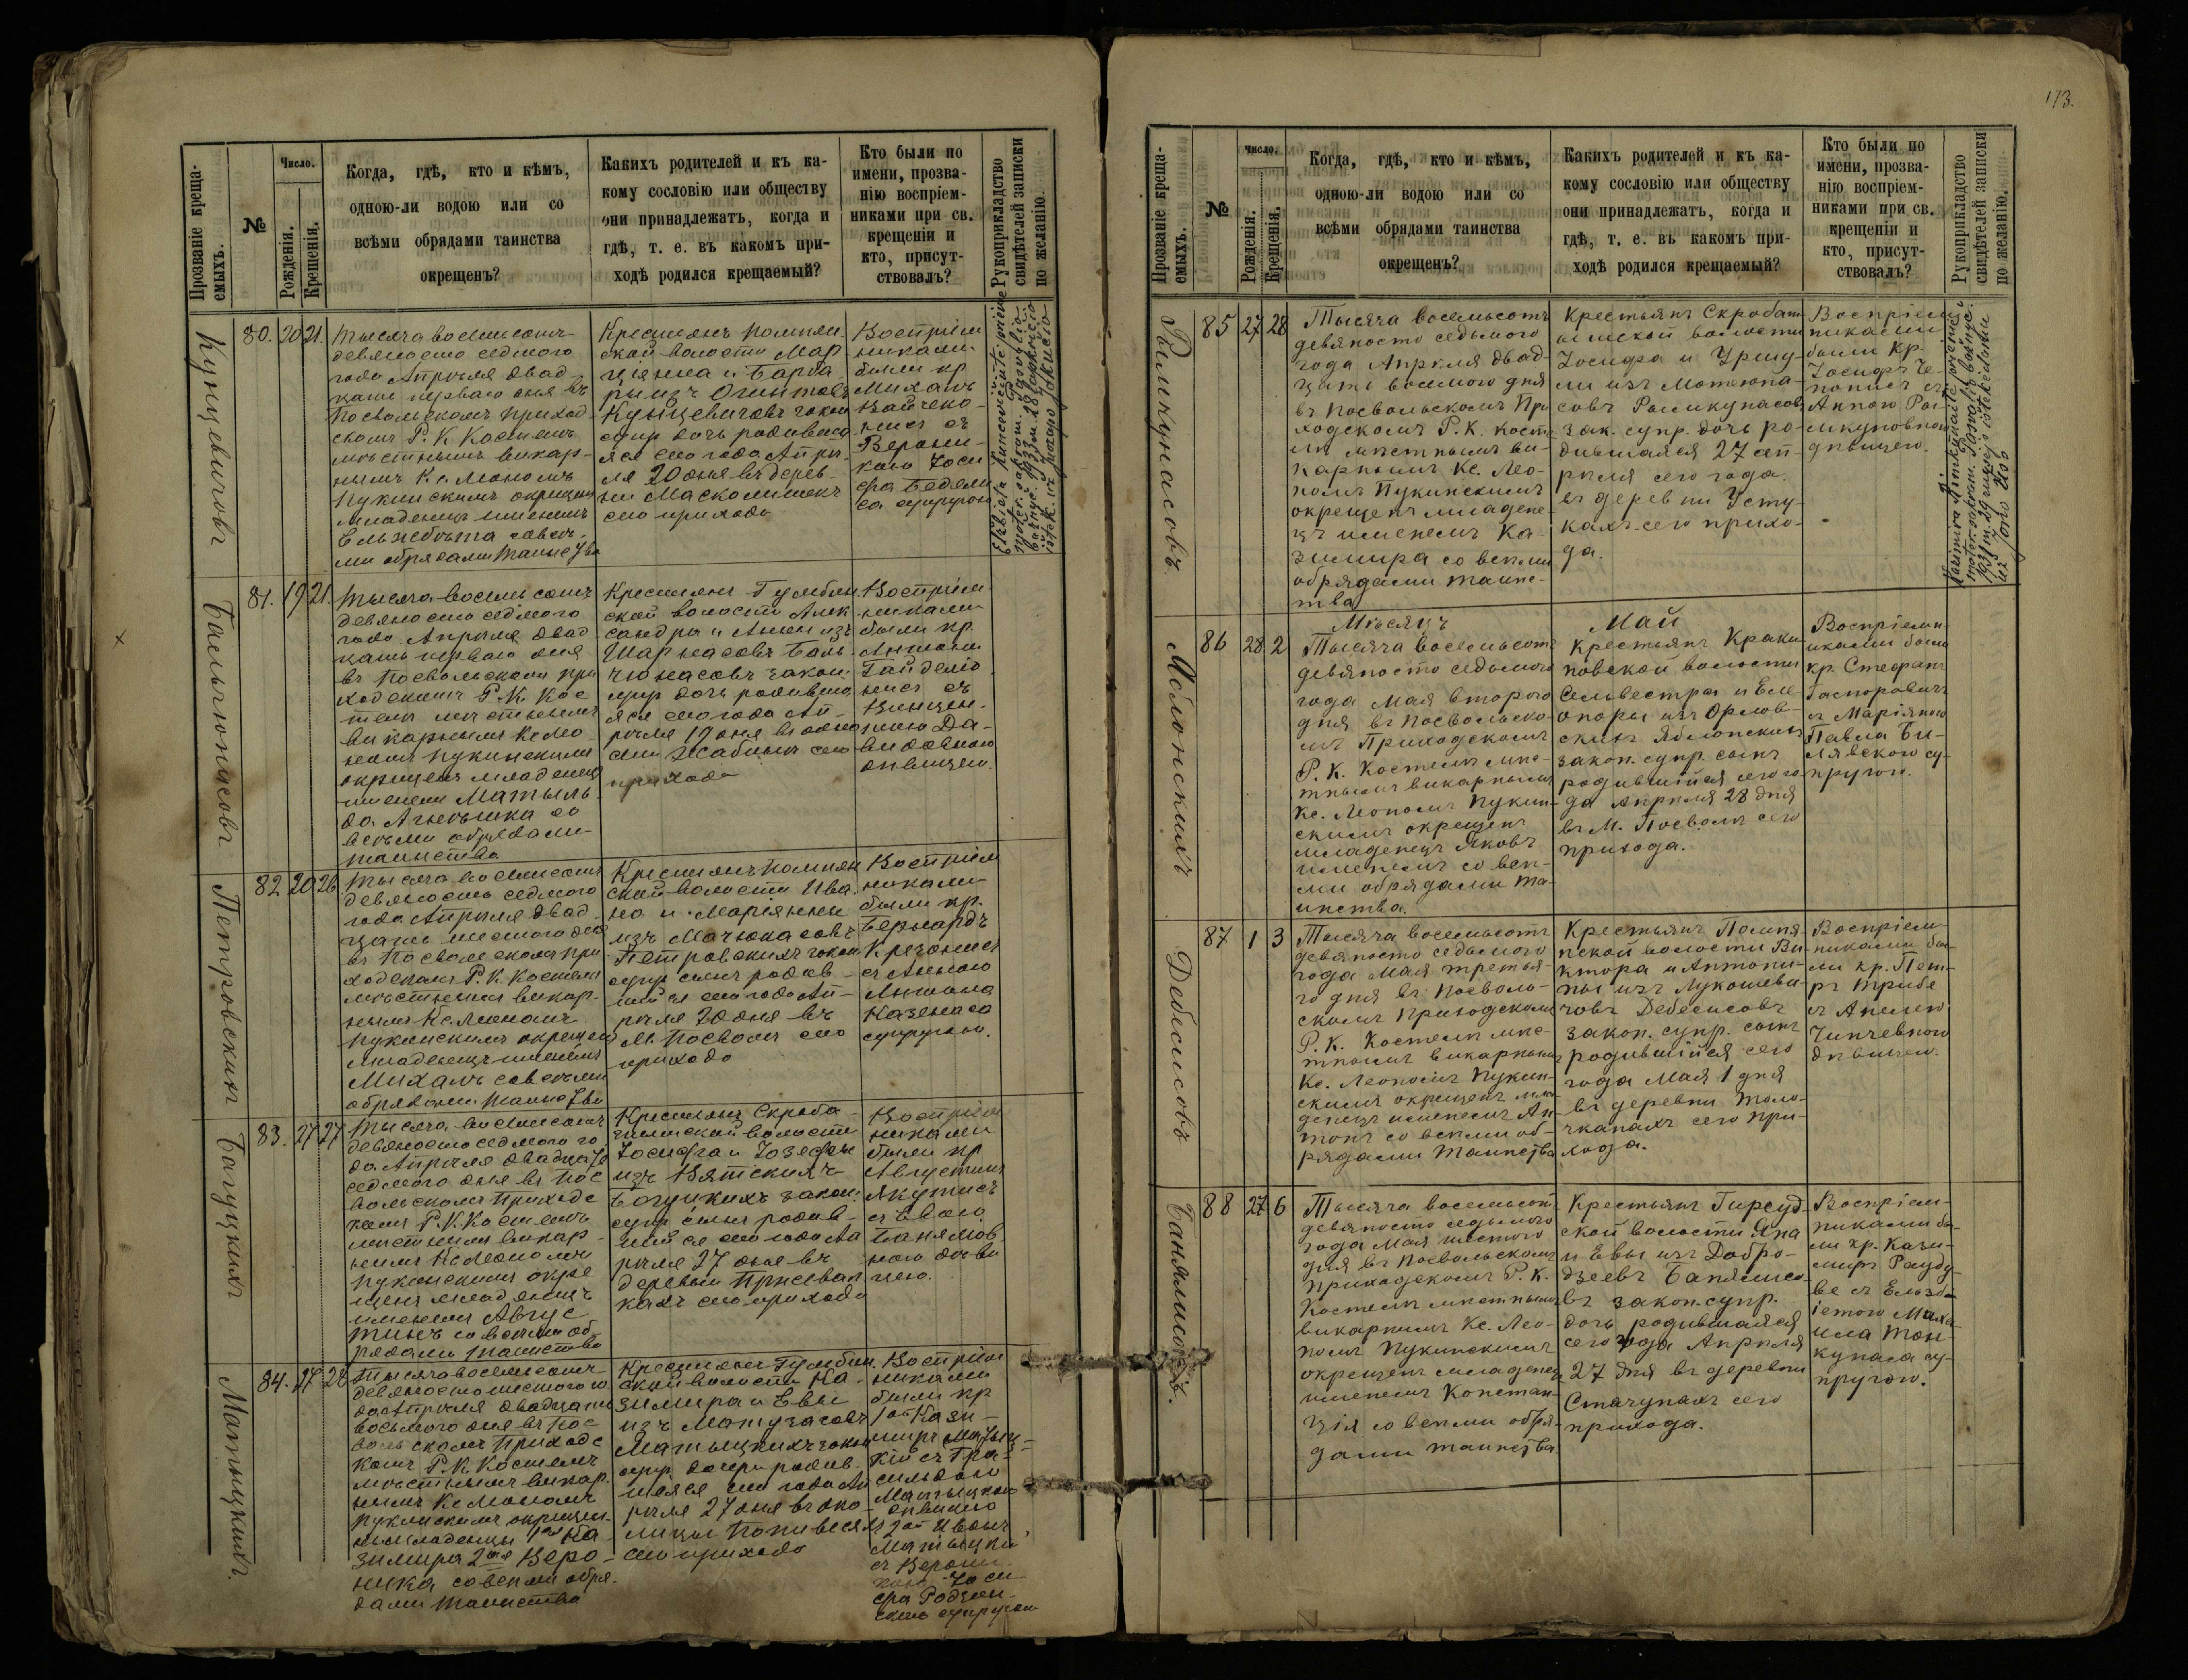 Прозваніе креща-
емыхъ.
№
Число.
Рожденія.
Крещенія.
Когда, гдѣ, кто и кѣмъ,
одною-ли водою или со
всѣми обрядами таинства
окрещенъ?
Какихъ родителей и къ ка-
кому сословію или обществу
они принадлежатъ, когда и
гдѣ, т. е. въ какомъ при-
ходѣ родился крещаемый?
Кто были по
имени, прозва-
нію воспріем-
никами при св.
крещеніи и
кто, присут-
ствовалъ?
Рукоприкладство
свидѣтелей записки
по желанію.
Кунцевичовъ
80. 20 21.
Тысяча восемьсотъ
девяносто седмого
года Апрѣля двад
цать перваго дня въ
Посвольскомъ приход
скомъ Р. К. Костелѣ
мѣстнымъ викар-
нымъ Кс. Леономъ
Пукинскимъ окрещенъ
младенецъ именемъ
Ельжебѣта со всѣ-
ми обрядами таинства
Крестьянъ Помпян
ской волости Мар
ціянна и Барба
ры изъ Огинтовъ
Кунцевичовъ закон
супр дочь родивша
яся сего года Апрѣ
ля 20 дня въ дерев
ни Масколишкахъ
сего прихода
Воспріем
никами
были кр
Михалъ
съ
Верони-
кою Іоси
фа
са супругою
81. 19 21.
Бальчюнасовъ
Тысяча восемь сотъ
девяносто седмого
года Апрѣля двад
цать перваго дня
въ Посвольскомъ при
ходскомъ Р. К. Кос
телѣ мѣстнымъ
викарнымъ Кс Лео
номъ Пукинскимъ
окрещенъ младенецъ
именемъ Матыль
да Агнѣшка со
всѣми обрядами
таинства
Крестьянъ Гумбин
ской волости Алек
сандра и Анны изъ
Шарнасовъ Баль
чюнасовъ закон:
супр дочь родивша
яся сего года Ап
рѣля 19 дня въ околи
цы Жабины сего
прихода
Воспріем
никами
были кр.
Антоній
съ
Винцен-
тою Да-
видовною
дѣвицею.
82 20 26
Петровскихъ
Тысяча восемьсотъ
девяносто седмого
года Апрѣля двад
цать шестого дня
въ Посвольскомъ при
ходскомъ Р. К. Костелѣ
мѣстнымъ викар-
нымъ Кс Леономъ
Пукинскимъ окрещенъ
младенецъ именемъ
Михалъ со всѣми
обрядами таинства
Крестьянъ Помпян
ской волости Ива
на и Маріянны
изъ Мачюкасовъ
Петровскихъ закон
супр сынъ родив
шійся сего года Ап
рѣля 20 дня въ
М. Посволи сего
прихода
Воспріем
никами
были кр.
Бернардъ
съ Анною
Антона
супругою.
83. 27 27
Багуцкихъ
Тысяча восемьсотъ
девяносто седмого го
да Апрѣля двадцать
седмого дня въ Пос
вольскомъ Приходс
комъ Р. К. Костелѣ
мѣстнымъ викар
нымъ Кс Леономъ
Пукинскимъ окре
щенъ младенецъ
именемъ Авгус
тинъ со всѣми об
рядами таинства
Крестьянъ Скроба
тишской волости
Іосифа и Іозефы
изъ Вятскихъ
Богуцкихъ закон:
супр сынъ родив
шійся сего года Ап
рѣля 27 дня въ
деревни
кахъ сего прихода
Воспріем
никами
были кр
Августинъ
Якутисъ
съ Евою
Банялов
ною дѣви
цею.
84. 27 28
Матыцкихъ.
Тысяча восемьсотъ
девяносто шестого го
да Апрѣля двадцать
восьмого дня въ Пос
вольскомъ Приходс
комъ Р. К. Костелѣ
мѣстнымъ викар
нымъ Кс Леономъ
Пукинскимъ окрещен-
ны младенцы 1ая Ка
зимира 2ая Веро
ника со всѣми обря-
дами таинства
Крестьянъ Гумбин
ской волости Ка
зимира и Евы
изъ Матузасовъ
Матыцкихъ закон
супр. дочери родив
шіяся сего года Ап
рѣля 27 дня въ око
лицы
сего прихода
Воспріем
никами
были кр
1ой Кази
миръ Матыц
кій съ
Матыцкою
дѣвицею
2ой Иванъ
Матыцкій
съ Верони
кою Іоси
фа
супругою
113.
Прозваніе креща-
емыхъ.
№
Число.
Рожденія.
Крещенія.
Когда, гдѣ, кто и кѣмъ,
одною-ли водою или со
всѣми обрядами таинства
окрещенъ?
Какихъ родителей и къ ка-
кому сословію или обществу
они принадлежатъ, когда и
гдѣ, т. е. въ какомъ при-
ходѣ родился крещаемый?
Кто были по
имени, прозва-
нію воспріем-
никами при св.
крещеніи и
кто, присут-
ствовалъ?
Рукоприкладство
свидѣтелей записки
по желанію.
Рымкунасовъ
85 27 28
Тысяча восемьсотъ
девяносто седьмого
года Апрѣля двад-
цать восьмого дня
въ Посвольскомъ При
ходскомъ Р. К. Косте
лѣ мѣстнымъ ви-
карнымъ Кс. Лео-
номъ Пукинскимъ
окрещенъ младене-
цъ именемъ Ка-
зимира со всѣми
обрядами таинс-
тва
Крестьянъ Скробат
ишской волости
Іосифа и Уршу-
ли изъ Мотеюна-
совъ Рымкунасовъ
зак. супр. дочь ро-
дившаяся 27 Ап-
рѣля сего года.
въ деревни Усту-
кахъ сего прихо-
да.
Воспріем
никами
были кр.
Іосифъ Че-
понисъ съ
Анною Ры-
мкуновною
дѣвицею.
Мѣсяцъ Май
86 28 2
Яблонскихъ
Тысяча восемьсотъ
девяносто седьмого
года Мая второго
дня въ Посвольско-
мъ Приходскомъ
Р. К. Костелѣ мѣс-
тнымъ викарнымъ
Кс. Леономъ Пукин-
скимъ окрещенъ
младенецъ Яковъ
именемъ со всѣ-
ми обрядами та-
инства.
Крестьянъ Краки-
новской волости
Сельвестра и Еле-
оноры изъ Орлов-
скихъ Яблонскихъ
закон. супр. сынъ
родившійся сего го-
да Апрѣля 28 дня
въ М. Посволѣ сего
прихода.
Воспріемн-
иками были
кр. Стефанъ
Гаспоровичъ
съ Маріяною
Павла Би-
лявского су-
пругой.
87 1 3
Дебесисовъ
Тысяча восемьсотъ
девяносто седьмого
года Мая третья-
го дня въ Посволь-
скомъ Приходскомъ
Р. К. Костелѣ мѣс-
тнымъ викарнымъ
Кс. Леономъ Пукин-
скимъ окрещенъ мла-
денецъ именемъ Ан-
тонъ со всѣми об-
рядами таинства
Крестьянъ Помпя-
нской волости Ви-
ктора и Антони-
ны изъ Лукошеви-
човъ Дебесисовъ
закон. супр. сынъ
родившійся сего
года Мая 1 дня
въ деревни Толо-
чканахъ сего при-
хода.
Воспріем-
никами бы-
ли кр. Пет-
ръ Трибе
съ Анелею
Чинчевною
дѣвицею.
88 27 6
Банялисовъ.
Тысяча восемьсотъ
девяносто седьмого
года Мая шестого
дня въ Посвольскомъ
Приходскомъ Р. К.
Костелѣ мѣстнымъ
викарнымъ Кс. Лео-
номъ Пукинскимъ
окрещенъ младенец
именемъ Констан-
ція со всѣми обря-
дами таинства.
Крестьянъ Гирсуд-
ской волости Яна
и Евы изъ Добро-
дзеевъ Банялисо-
въ закон. супр.
дочь родившаяся
сего года Апрѣля
27 дня въ деревни
Стачунахъ сего
прихода.
Воспріем-
никами бы-
ли кр. Кази-
миръ Рауду-
ве съ Ельзб-
ѣтою Миха-
ила Тон-
кунаса су-
пругою.